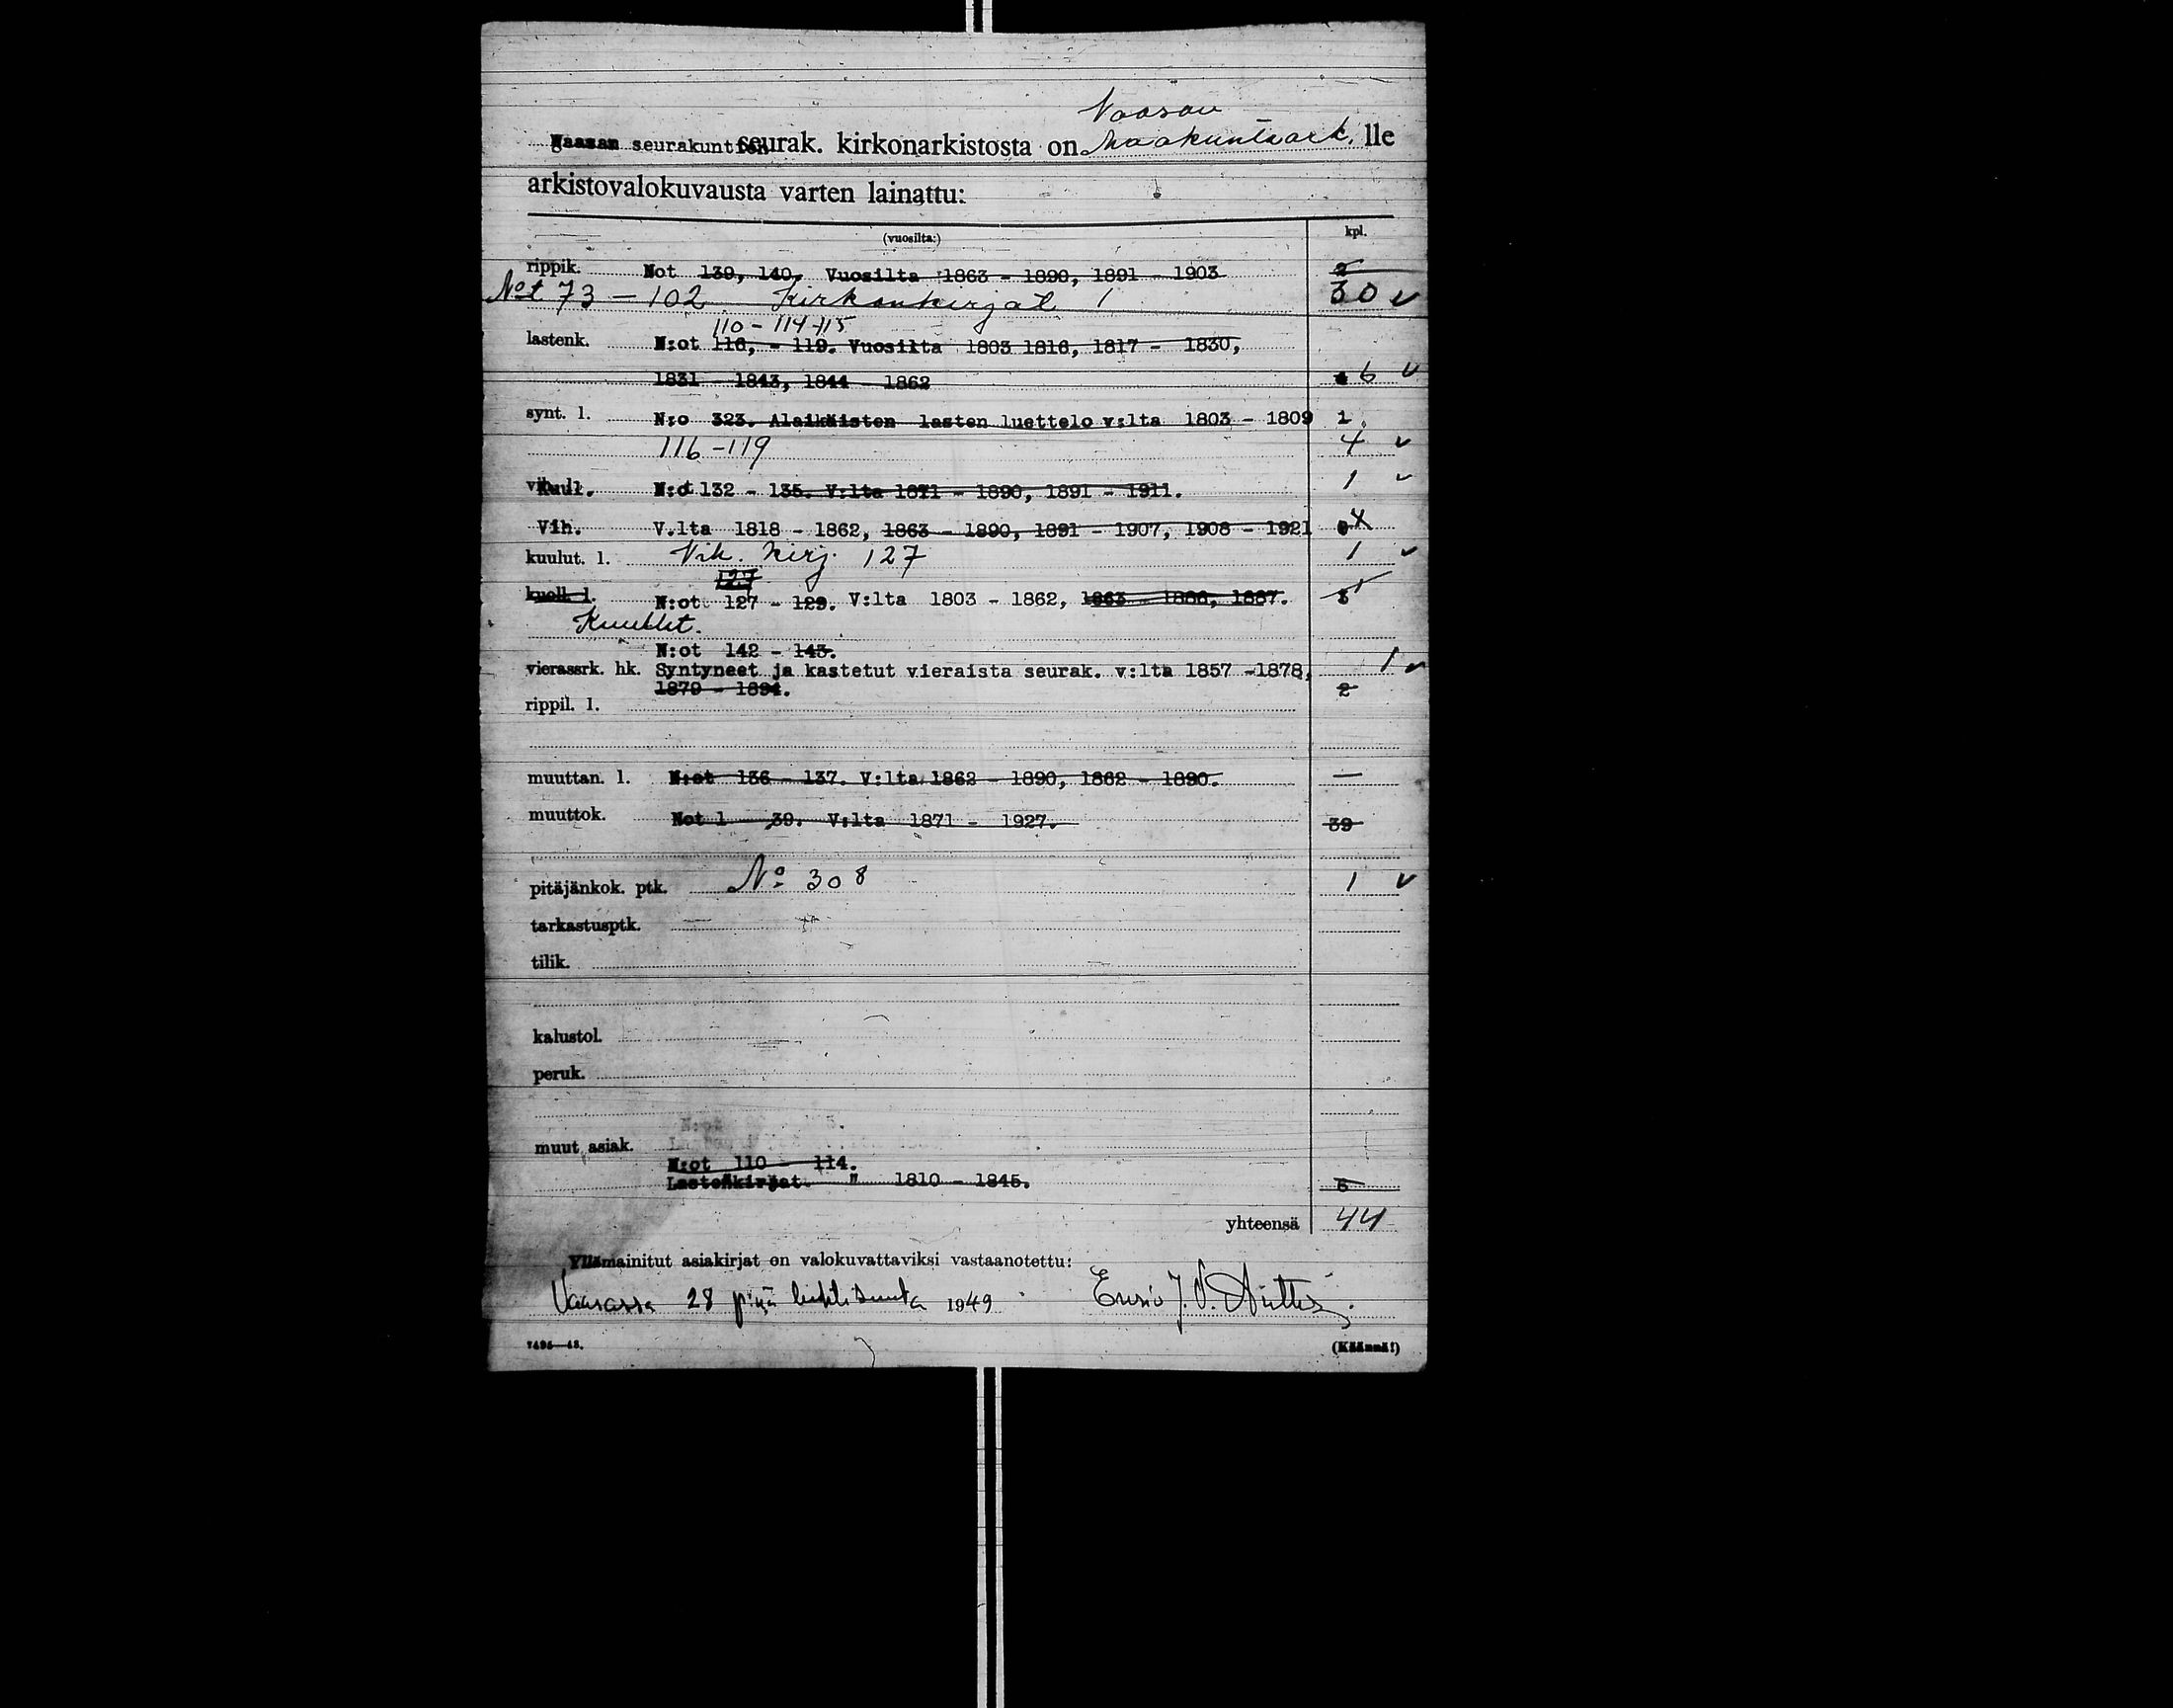 Vaasan
Vaasan seurakuntien seurak. kirkonarkistosta on Maakuntaark. lle
arkistovalokuvausta varten lainattu:
(vuosilta:) kpl.
rippik. Not 139, 140. Vuosilta 1863 - 1890, 1891 - 1903 2
Not 73 - 102 Kirkonkirjat 1 30 v
110 - 114 - 115
lastenk. N:ot 116, - 119. Vuosilta 1803 1816, 1817 - 1830,
1831 - 1843, 1844 - 1862 6 v
synt. l. N:o 323. Alaikäisten lasten luettelo v:lta 1803 - 1809 1.
116 - 119 4 v
Kuul. N:ot 132 - 135. V:lta 1871 - 1890, 1891 - 1911. 1 v
Vih. V.lta 1818 - 1862, 1863 - 1890, 1891 - 1907, 1908 - 1921 4
kuulut. l. Vih. kirj. 127 1 v
127
kuoll. l. N:ot 127 - 129. V:lta 1803 - 1862, 1863 - 1886, 1887. 3
Kuullut.
N:ot 142 - 143.
vierassrk. hk. Syntyneet ja kastetut vieraista seurak. v:lta 1857 -1878, 1 v
1879 - 1894. 2
rippil. l.
muuttan. l. N:ot 136 - 137. V:lta 1862 - 1890, 1862 - 1890. —
muuttok. Not 1 - 39. V:lta 1871 - 1927. 39
pitäjänkok. ptk. No 308 1 v
tarkastusptk.
tilik.
kalustol.
peruk.
muut asiak.
N:ot 110 - 114.
Lastenkirjat. " 1810 - 1845. 5
yhteensä 44
Yllämainitut asiakirjat on valokuvattaviksi vastaanotettu:
Vaasassa 28 p:nä huhtikuuta 1949 Ensio J. V.
7495—48. (Käännä!)